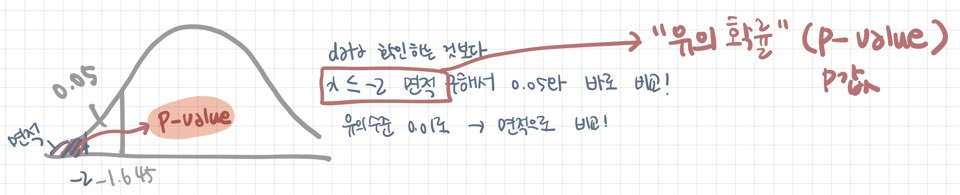 0.05
면적
P-value
-2 -1.645
data 확인하는 것보다
x ≤ -2 면적 구해서 0.05와 바로 비교!
유의수준 0.01로 → 면적으로 비교!
"유의 확률" (P-value)
P값